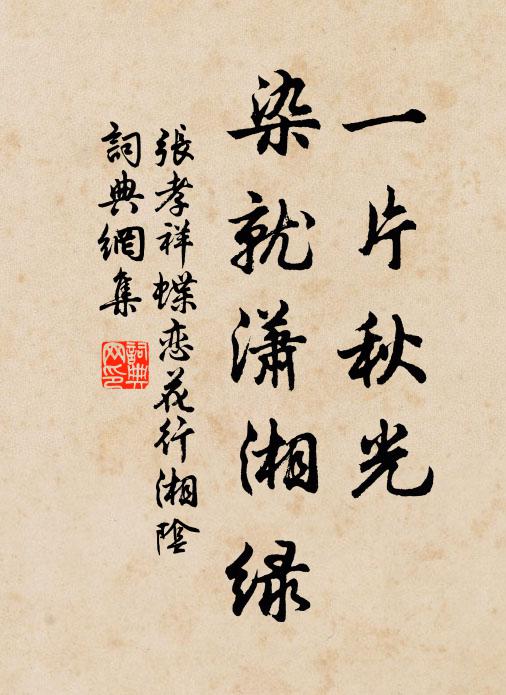 一片秋光
染就潇湘绿
張孝祥蝶恋花行湘陰
詞典網集
詞典网印